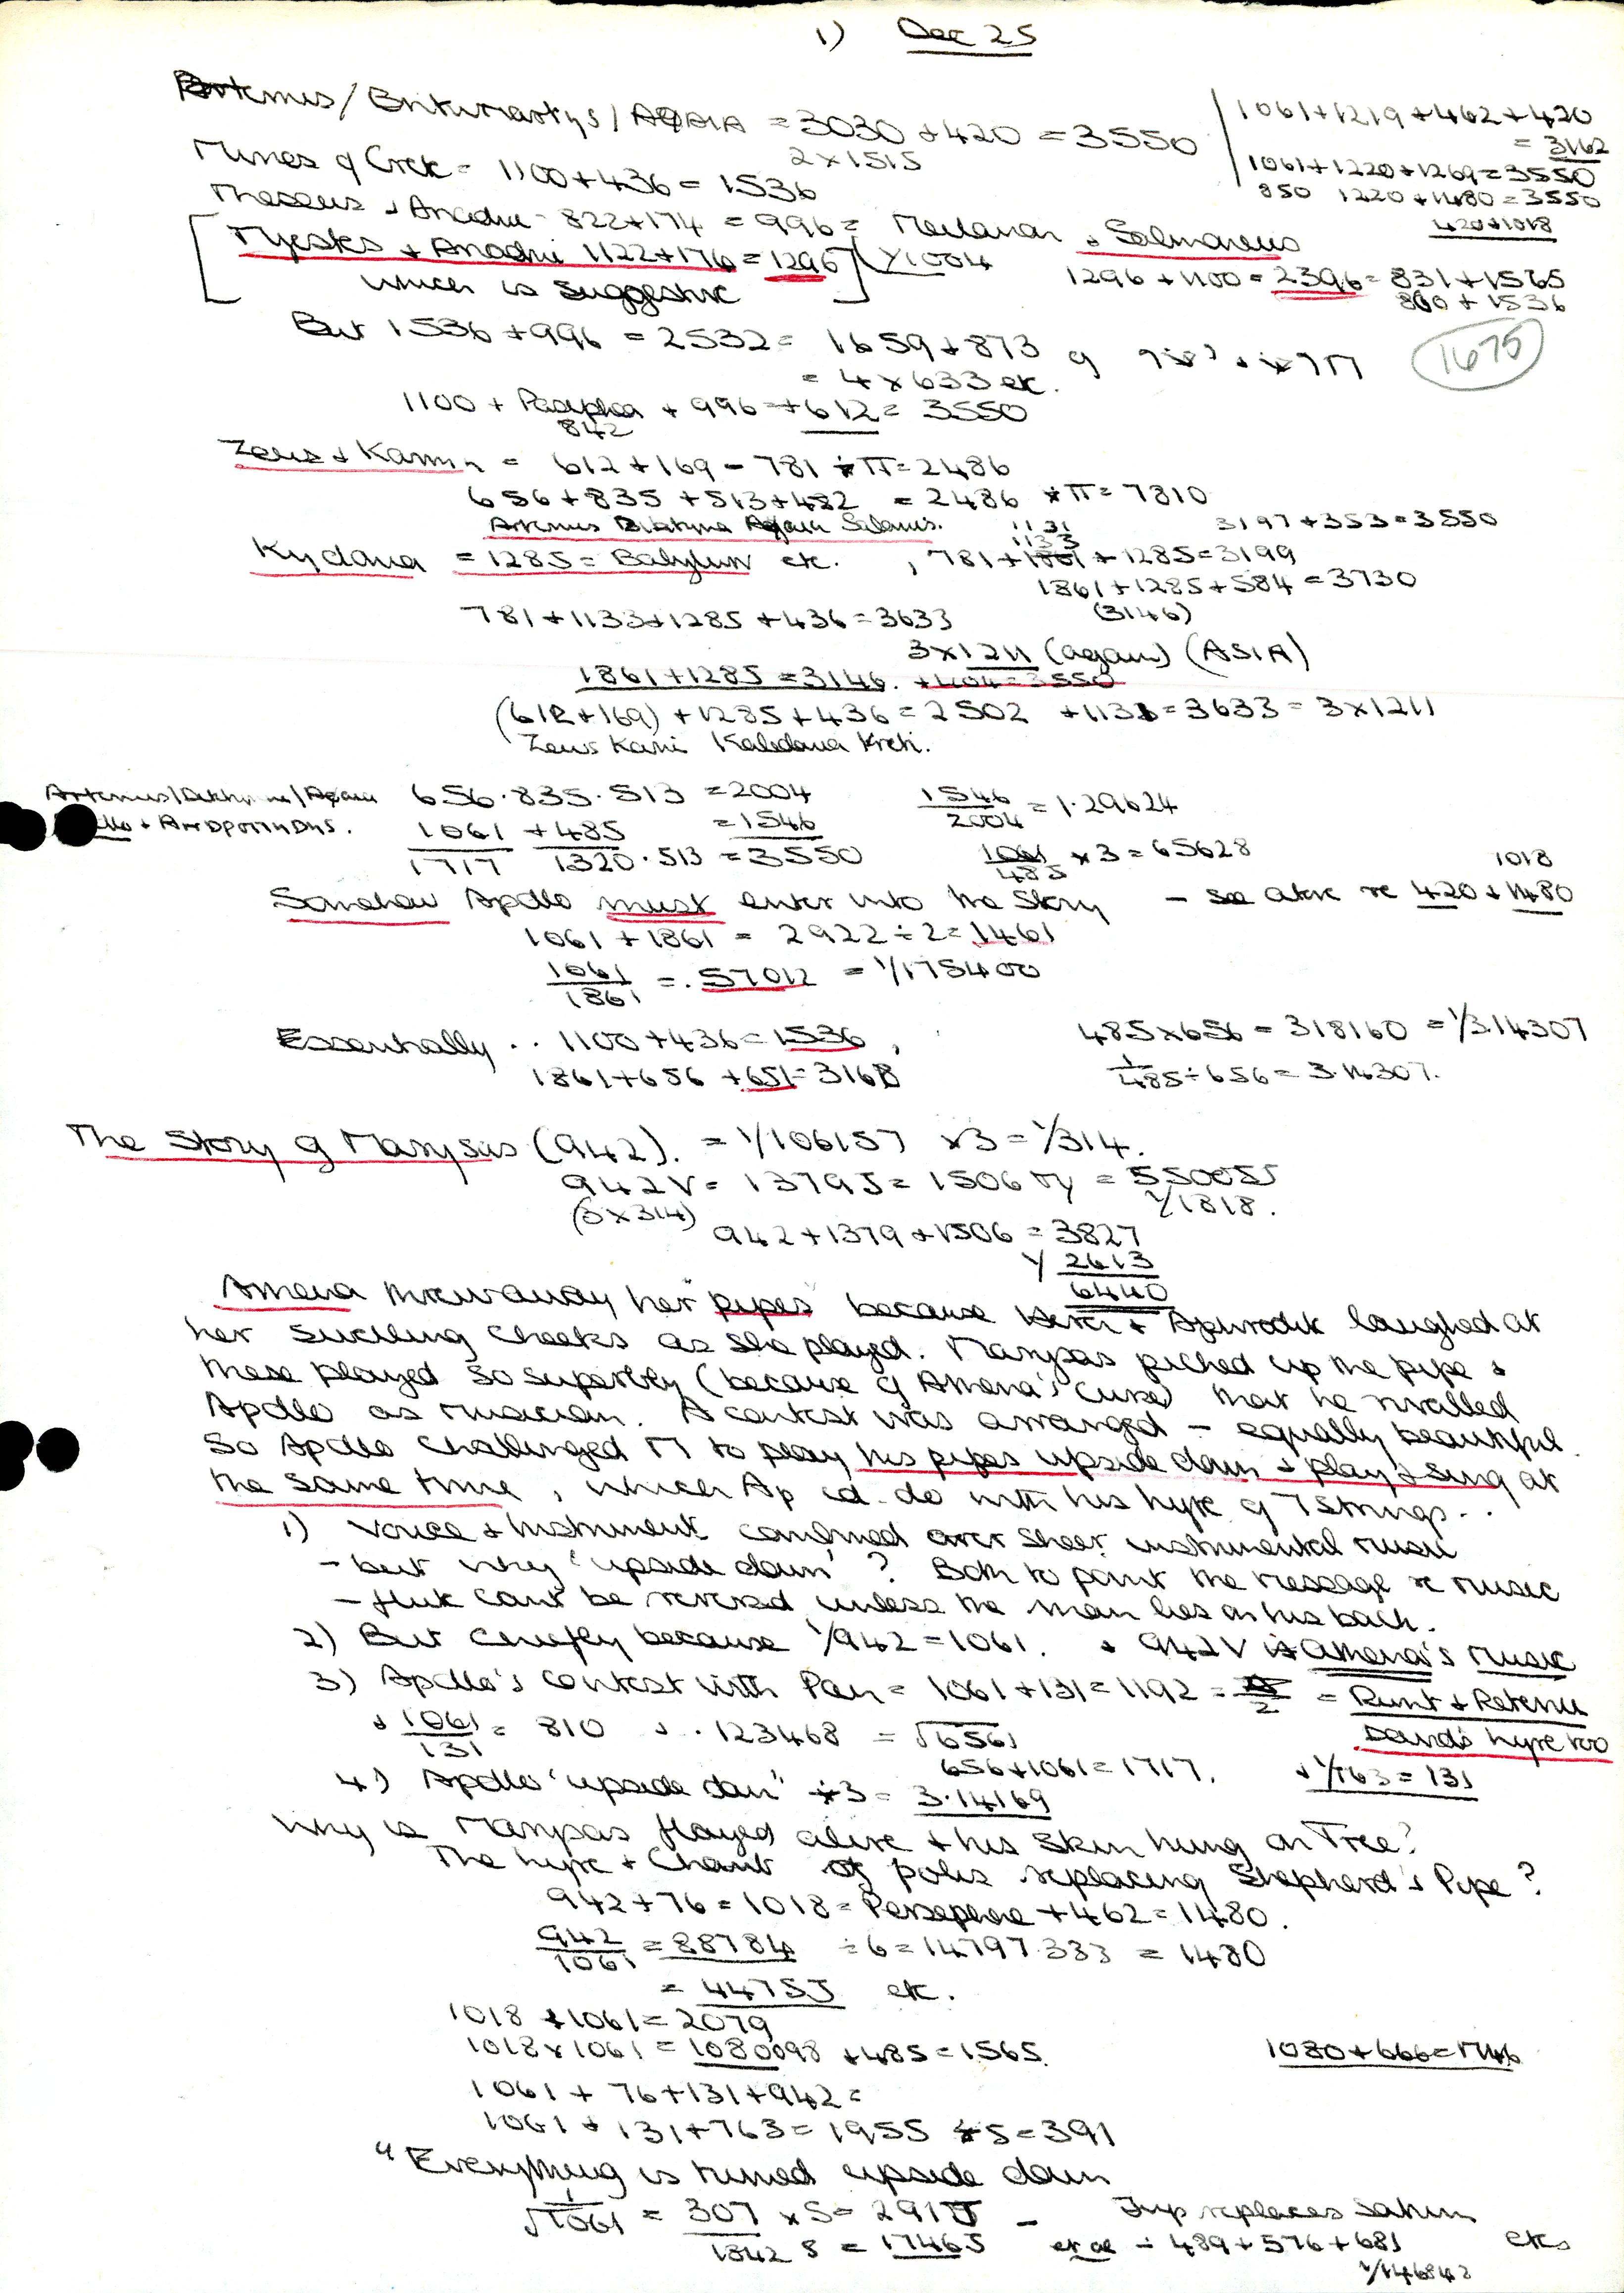 1) Dec 25
Artemis / Britomartys / = 3030 + 420 = 3550
2 x 1515
1061+1219+462+420
= 3162
1061+1220+1269=3550
850 1220+1480=3550
420+1018
Minos of Crete = 1100+436 = 1536
Theseus + Ariadne = 822+174 = 996 =
[Thyestes + Ariadne 1122+176 = 1296] 1/1004
which is suggestive
1296 + 1100 = 2396 = 831+1565
860 + 1536
But 1536 + 996 = 2532 = 1659+873
= 4 x 633 etc.
1675
1100 + Pasiphae + 996 + 612 = 3550
842
Zeus + = 612+169 = 781 ÷ π = 2486
656+835+513+482 = 2486 x π = 7810
Artemis
1131
1133
3197+353=3550
Kydonia = 1285 = Babylon etc. , 781+1861+1285=3199
1861+1285+584=3730
(3146)
781+1133+1285+436=3633
3x1211 (again) (ASIA)
1861+1285=3146. +1404=3550
(612+169)+1285+436=2502 +1131=3633=3x1211
Zeus
656.835.513 = 2004
1061 + 485 = 1546
1717 1320.513 = 3550
1546/2004 = 1.29624
1061/485 x 3 = 65628
1018
Somehow Apollo must enter into the Story - see above re 420 + 1480
1061 + 1861 = 2922 ÷ 2 = 1461
1061/1861 = .57012 = 1/175400
Essentially .. 1100+436=1536,
485x656 = 318160 = 1/3.14307
1861+656+651=3168
1/485÷656 = 3.14307.
The Story of Marysas (942). = 1/106157 x3 = 1/314.
942V = 1379 = 1506 = 550055
(3x314) 1/1818.
942+1379+1506 = 3827
2613
6440
Athena threw away her "pipes" because Hera + Aphrodite laughed at
her swelling cheeks as she played. Marysas picked up the pipe &
these played so superbly (because of Athena's curse) that he rivalled
Apollo as musician. A contest was arranged - equally beautiful.
So Apollo challenged M to play his pipes upside down & play & sing at
the same time, which Ap cd. do with his lyre of 7 strings..
1) Voice & Instrument combined over sheer instrumental music
- but why 'upside down'? Both to point the message re music
- flute can't be reversed unless the man lies on his back.
2) But chiefly because 1/942 = 1061. + 942V is Athena's music
3) Apollo's contest with Pan = 1061+131=1192 = = Root & Return
+ 1061/131 = 810 + .123468 = √6561
David's lyre too
656+1061=1717. + 1/763 = 131
4) Apollo 'upside down' ÷3 = 3.14169
Why is Marysas flayed alive & his skin hung on Tree?
The lyre & Chant of polis replacing Shepherd's Pipe?
942+76=1018=Persephone +462=1480.
942/1061 = 88784 ÷6=14797.333 = 1480
= 44755 etc.
1018+1061=2079
1018x1061 = 1080098 +485=1565.
1080+666=1746
1061 + 76+131+942=
1061 + 131+763=1955 ÷5=391
"Everything is turned upside down
√1/1061 = 307 x 5 = - Jup replaces Saturn
1842 8 = 17465 ÷ 489+576+681 etc
1/146842